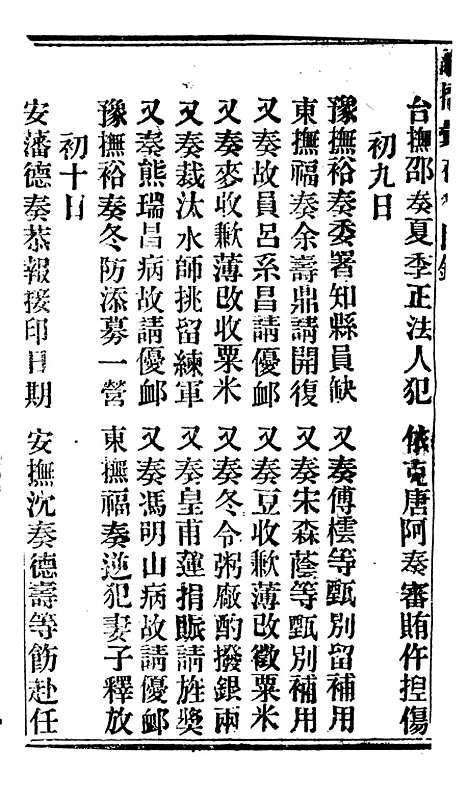 台撫邵奏夏季正法人犯　依克唐阿奏審賄仵揑傷
初九日
豫撫裕奏委署知縣員缺　又奏傅橒等甄別留補用
東撫福奏余壽鼎請開復　又奏宋森蔭等甄別補用
又奏故員呂系昌請優卹　又奏豆收歉薄改徵粟米
又奏麥收歉薄改收粟米　又奏冬令粥廠酌撥銀兩
又奏裁汰水師挑留練軍　又奏皇甫蓮捐賑請旌奬
又奏熊瑞昌病故請優卹　又奏馮明山病故請優卹
豫撫裕奏冬防添募一營　東撫福奏逆犯妻子釋放
初十日
安藩德奏恭報接印日期　安撫沈奏德壽等飭赴任